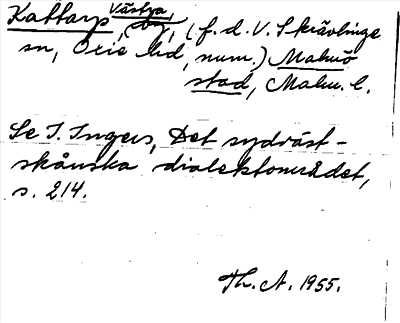 Kattarp, Västra, by, (f.d. V. Skrävlinge
sn, Oxie hd, num.) Malmö
stad, Malm. l.
Se I. Ingers, Det sydväst-
skånska dialektområdet,
s. 214.
Th. A. 1955.